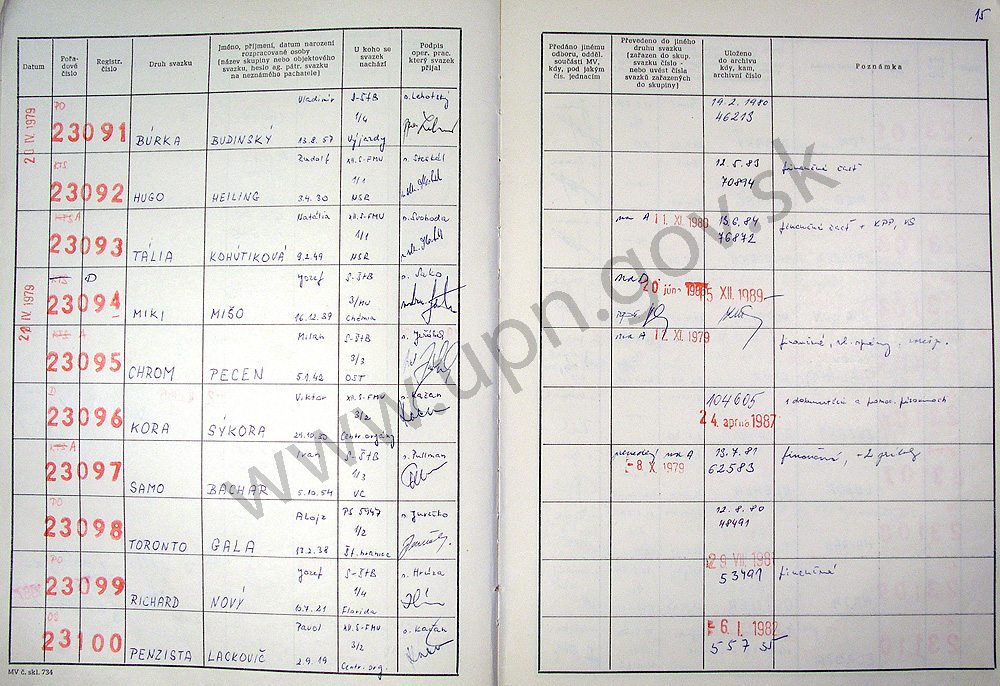 15
Datum
Pořa-
dové
číslo
Registr.
číslo
Druh svazku
Jméno, příjmení, datum narození
rozpracované osoby
(název skupiny nebo objektového
svazku, heslo ag. pátr. svazku
na neznámého pachatele)
U koho se
svazek
nachází
Podpis
oper. prac.
který svazek
přijal
Předáno jinému
odboru, odděl.
součásti MV,
kdy, pod jakým
čís. jednacím
Převedeno do jiného
druhu svazku
(zařazen do skup.
svazku číslo -
nebo uvést čísla
svazků zařazených
do skupiny)
Uloženo
do archivu
kdy, kam,
archivní číslo
Poznámka
20 IV. 1979
PO
23091
BÚRKA
BUDINSKÝ
Vladimír
13.8.57
S-ŠtB
1/4
Výjazdy
n. Lehotský
19.2.1980
46213
KTS
23092
HUGO
HEILING
Rudolf
3.4.30
XII.S-FMV
1/1
NSR
12.5.83
70894
finančná časť
KTS A
23093
TÁLIA
KOHÚTIKOVÁ
Natália
9.2.49
XII.S-FMV
1/1
NSR
n. Svoboda
na A 11. XI. 1980
13.6.84
76872
finančné časť + KPP, VS
IV 1979
KTS D
23094
MIKI
MIŠO
Jozef
16.12.39
S-ŠtB
3/MU
Chémia
n. Sako
na D
20. júna
XII. 1989
KTS A
23095
CHROM
PECEN
Milan
5.1.42
S-ŠtB
3/3
OST
na A 12. XI. 1979
D
23096
KORA
SÝKORA
Viktor
XII.S-FMV
3/2
Centr.orgány
n. Kažan
104605
24. apríla 1987
KTS A
23097
SAMO
BACHAR
Ivan
5.10.54
S-ŠtB
1/3
VC
n. Pullman
na A
-8. X. 1979
13.7.81
62583
PO
23098
TORONTO
GALA
Alojz
13.2.38
PS 5947
1/2
Št.hranice
12.8.80
48491
PO
23099
RICHARD
NOVÝ
Jozef
10.7.21
S-ŠtB
1/4
Florida
n. Hrúza
29. VII. 1981
53491
finančné
23100
PENZISTA
LACKOVIČ
Pavol
2.9.19
XII.S-FMV
3/2
Centr.org.
n. Kažan
6. I. 1982
55755
MV č. skl. 734
www.upn.gov.sk